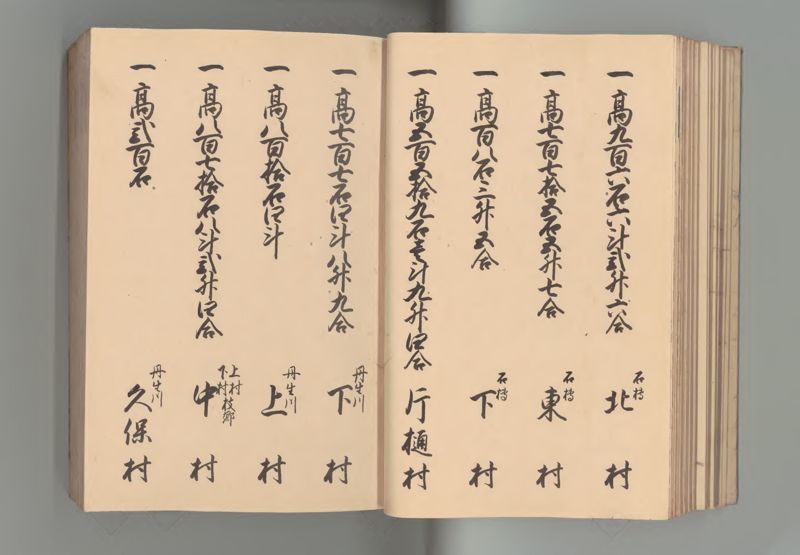 一 高九百六石六斗弐升六合 石橋 北村
一 高七百七拾五石五升七合 石橋 東村
一 高百八石二升五合 石橋 下村
一 高五百五拾九石壱斗九升四合 行樋村
一 高七百七石四斗八升九合 丹生川 下村
一 高八百拾石四斗 丹生川 上村
一 高八百七拾石八斗弐升四合 上村下村枝郷 中村
一 高弐百石 丹生川 久保村